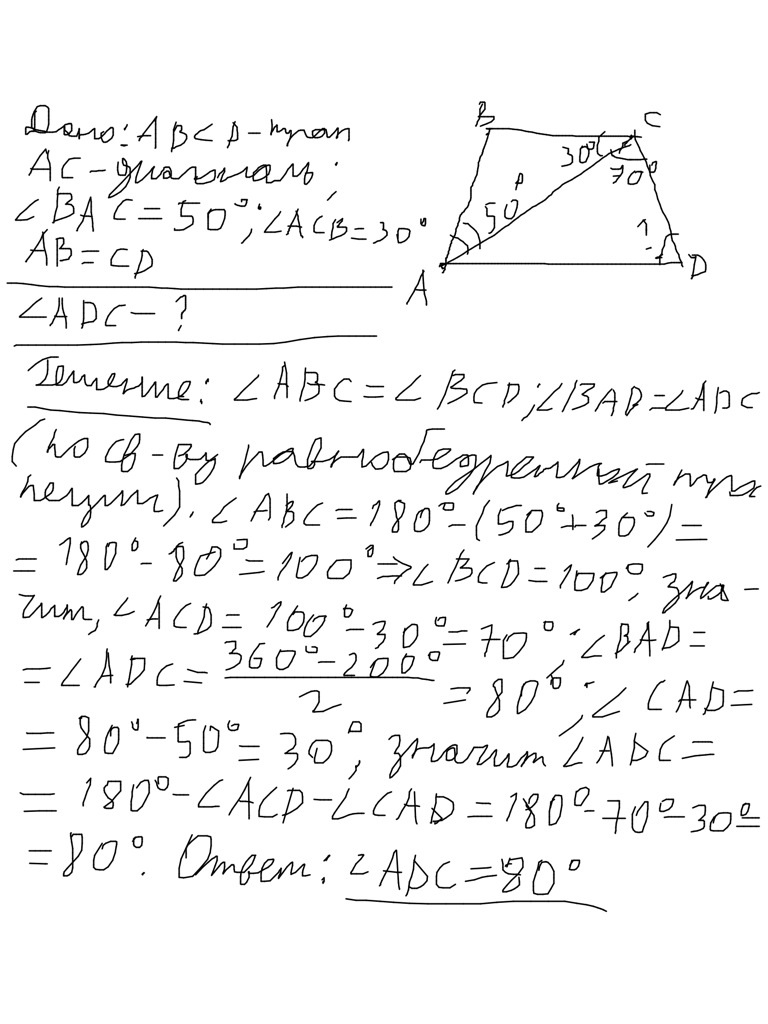 Дано: ABCD - трап
AC - диагональ;
∠BAC = 50°; ∠ACB = 30°
AB = CD
∠ADC - ?
B
C
30°
70°
50°
?
A
D
Решение: ∠ABC = ∠BCD; ∠BAD = ∠ADC
(по св-ву равнобедренной тра
пеции). ∠ABC = 180° - (50° + 30°) =
= 180° - 80° = 100° ⇒ ∠BCD = 100°, зна -
чит, ∠ACD = 100° - 30° = 70°; ∠BAD =
= ∠ADC = (360° - 200°)/2 = 80°; ∠CAD =
= 80° - 50° = 30°, значит ∠ADC =
= 180° - ∠ACD - ∠CAD = 180° - 70° - 30° =
= 80°. Ответ: ∠ADC = 80°